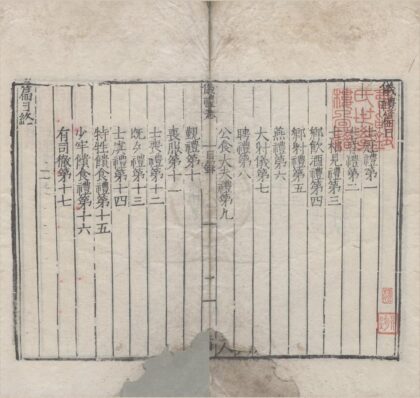 儀禮篇目
士冠禮第一
士昏禮第二
士相見禮第三
鄉飲酒禮第四
鄉射禮第五
燕禮第六
大射儀第七
聘禮第八
公食大夫禮第九
覲禮第十
喪服第十一
士喪禮第十二
既夕禮第十三
士虞禮第十四
特牲饋食禮第十五
少牢饋食禮第十六
有司徹第十七
篇目終